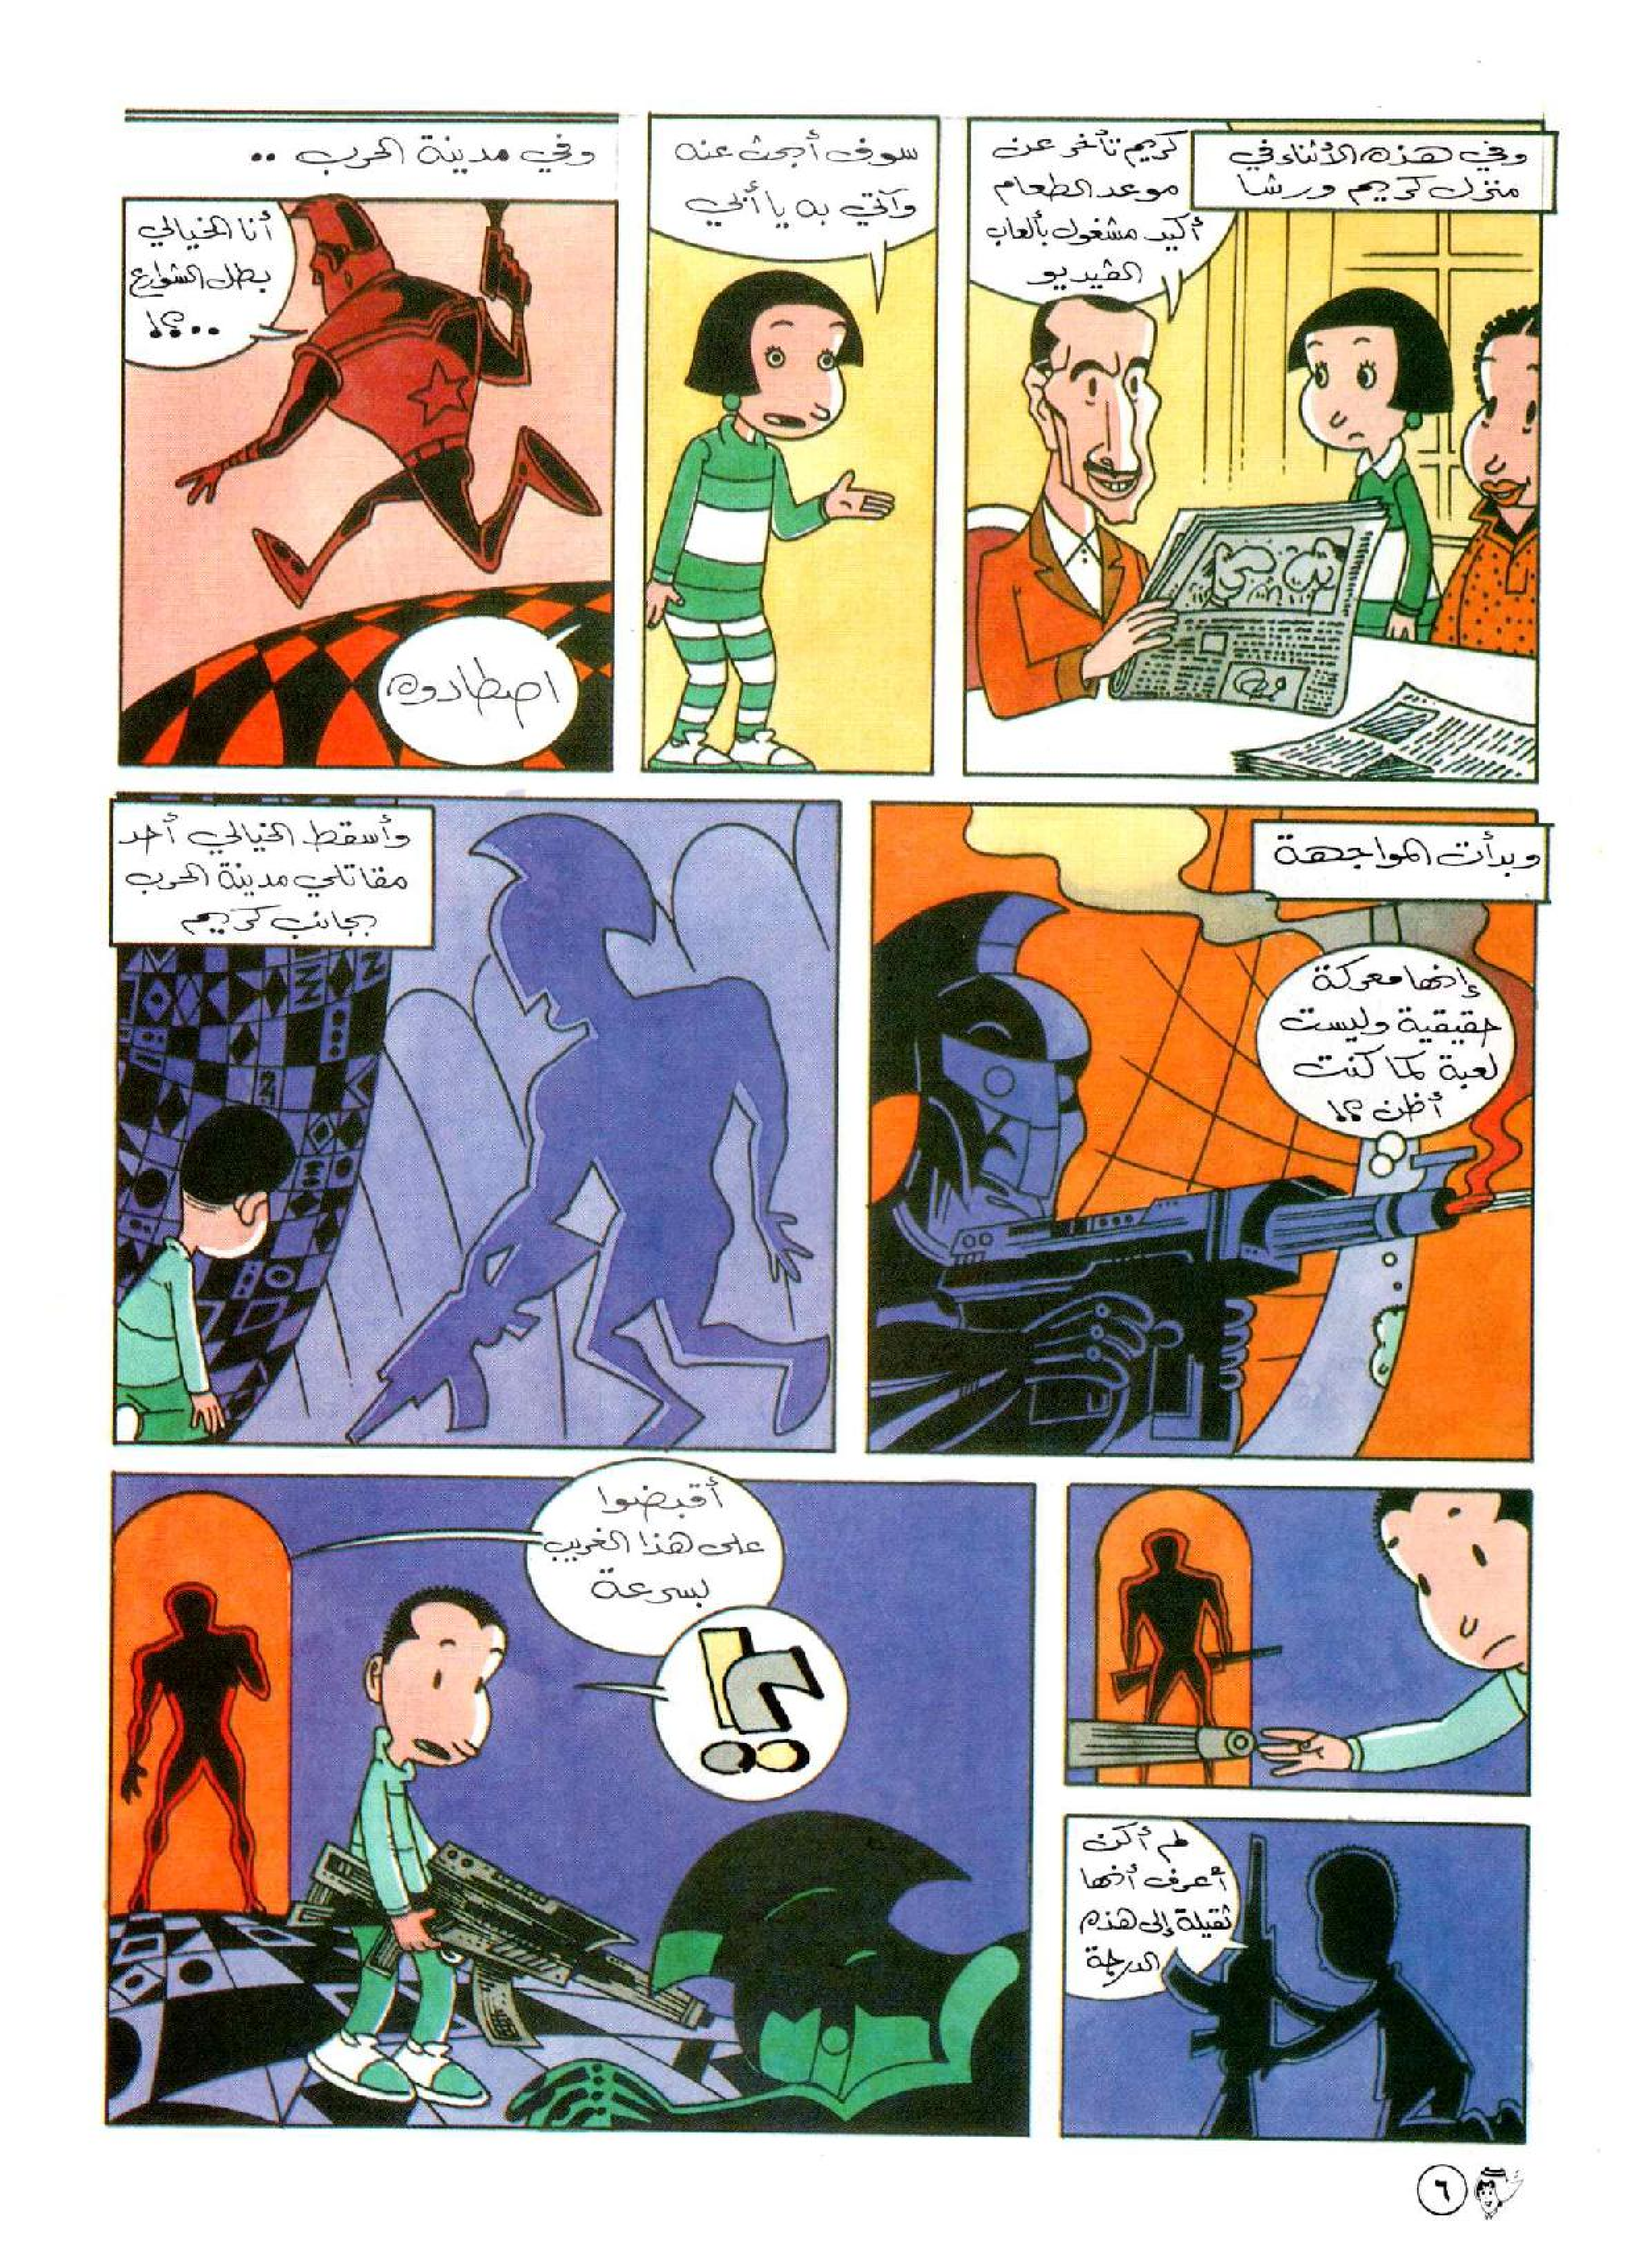 وفي هذه الأثناء في
منزل كريم ورشا
كريم تأخر عن
موعد الطعام
أكيد مشغول بألعاب
الڤيديو
سوف أبحث عنه
وآتي به يا أبي
وفي مدينة الحرب ..
أنا الخيالي
بطل الشوارع
..؟!
اصطادوه
وبدأت المواجهة
إنها معركة
حقيقية وليست
لعبة كما كنت
أظن ؟!
وأسقط الخيالي أحد
مقاتلي مدينة الحرب
بجانب كريم
لم أكن
أعرف أنها
ثقيلة إلى هذه
الدرجة
أقبضوا
على هذا الغريب
بسرعة
؟!
٦